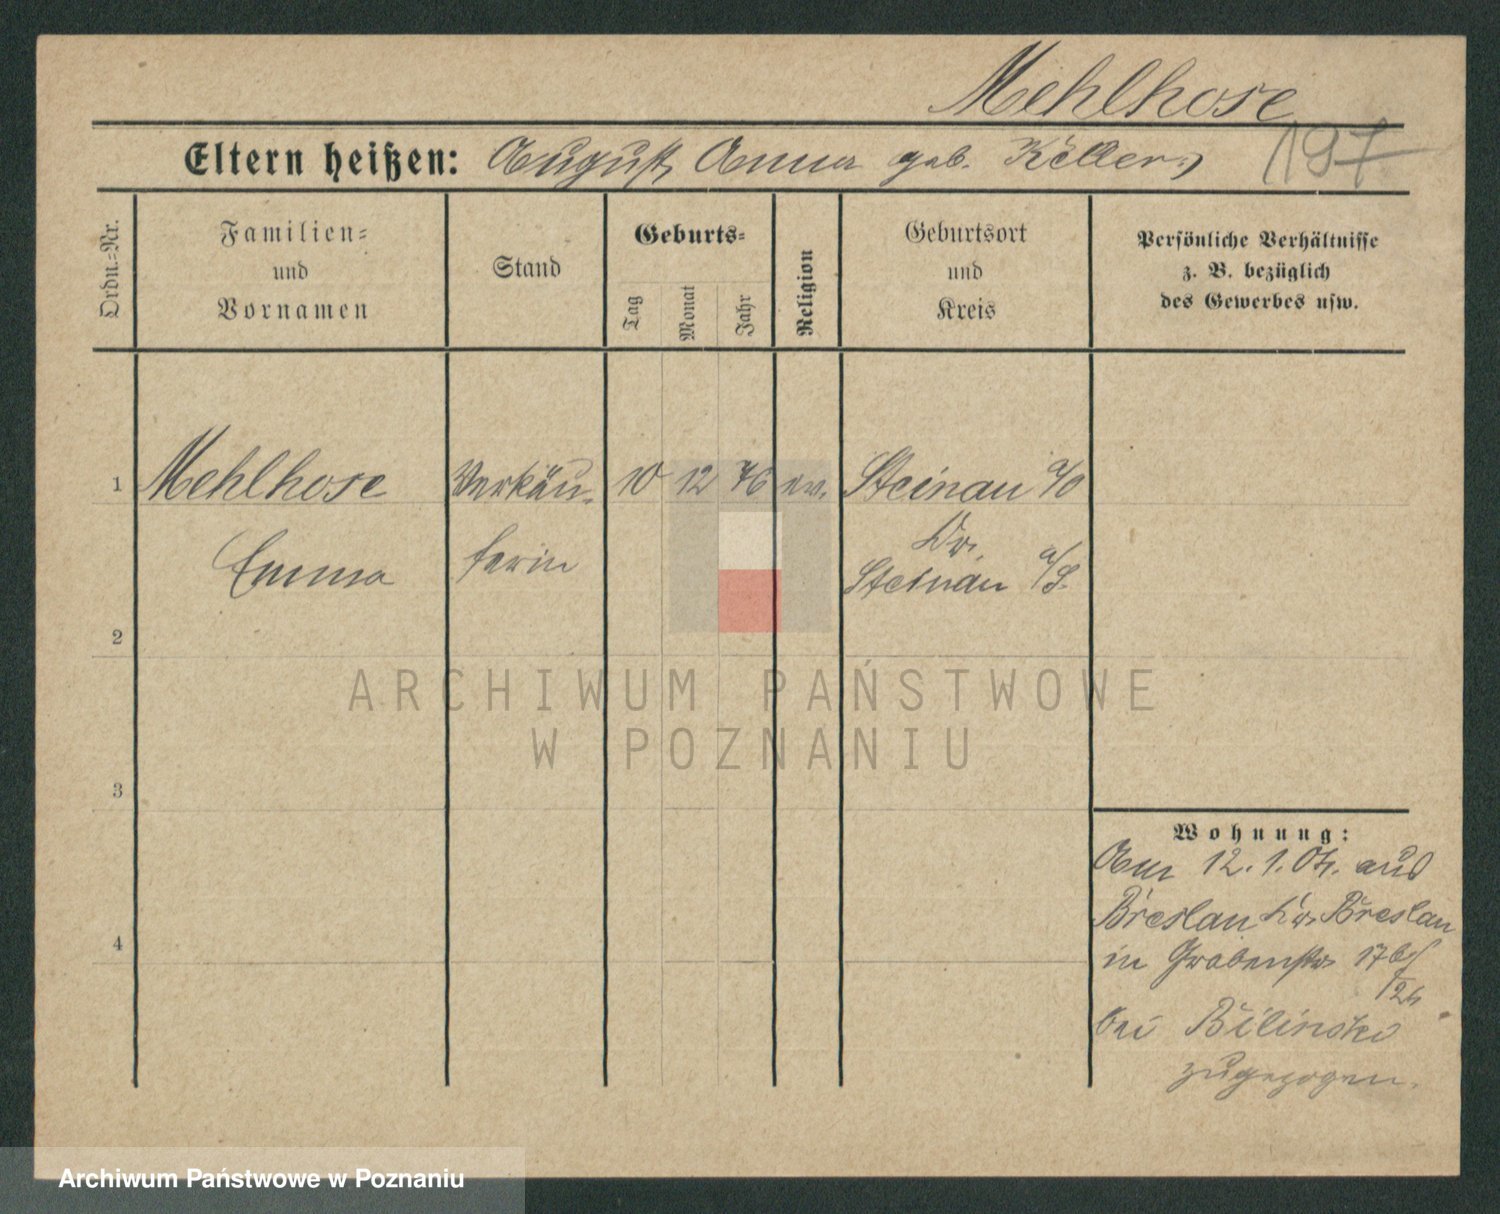 Mehlhose
Eltern heißen: August, Anna geb. Keller,
197
Ordn.-Nr.
Familien-
und
Vornamen
Stand
Geburts-
Tag
Monat
Jahr
Religion
Geburtsort
und
Kreis
Persönliche Verhältnisse
z. B. bezüglich
des Gewerbes usw.
1 Mehlhose Verkäu- 10 12 76 ev. Steinau a/O
Emma ferin Kr.
Steinau a/
2
ARCHIWUM PAŃSTWOWE
W POZNANIU
3
4
Wohnung:
Am 12.1.07. aus
Breslau Kr. Breslau
in Grabenstr
bei Bilinski
zugezogen.
Archiwum Państwowe w Poznaniu